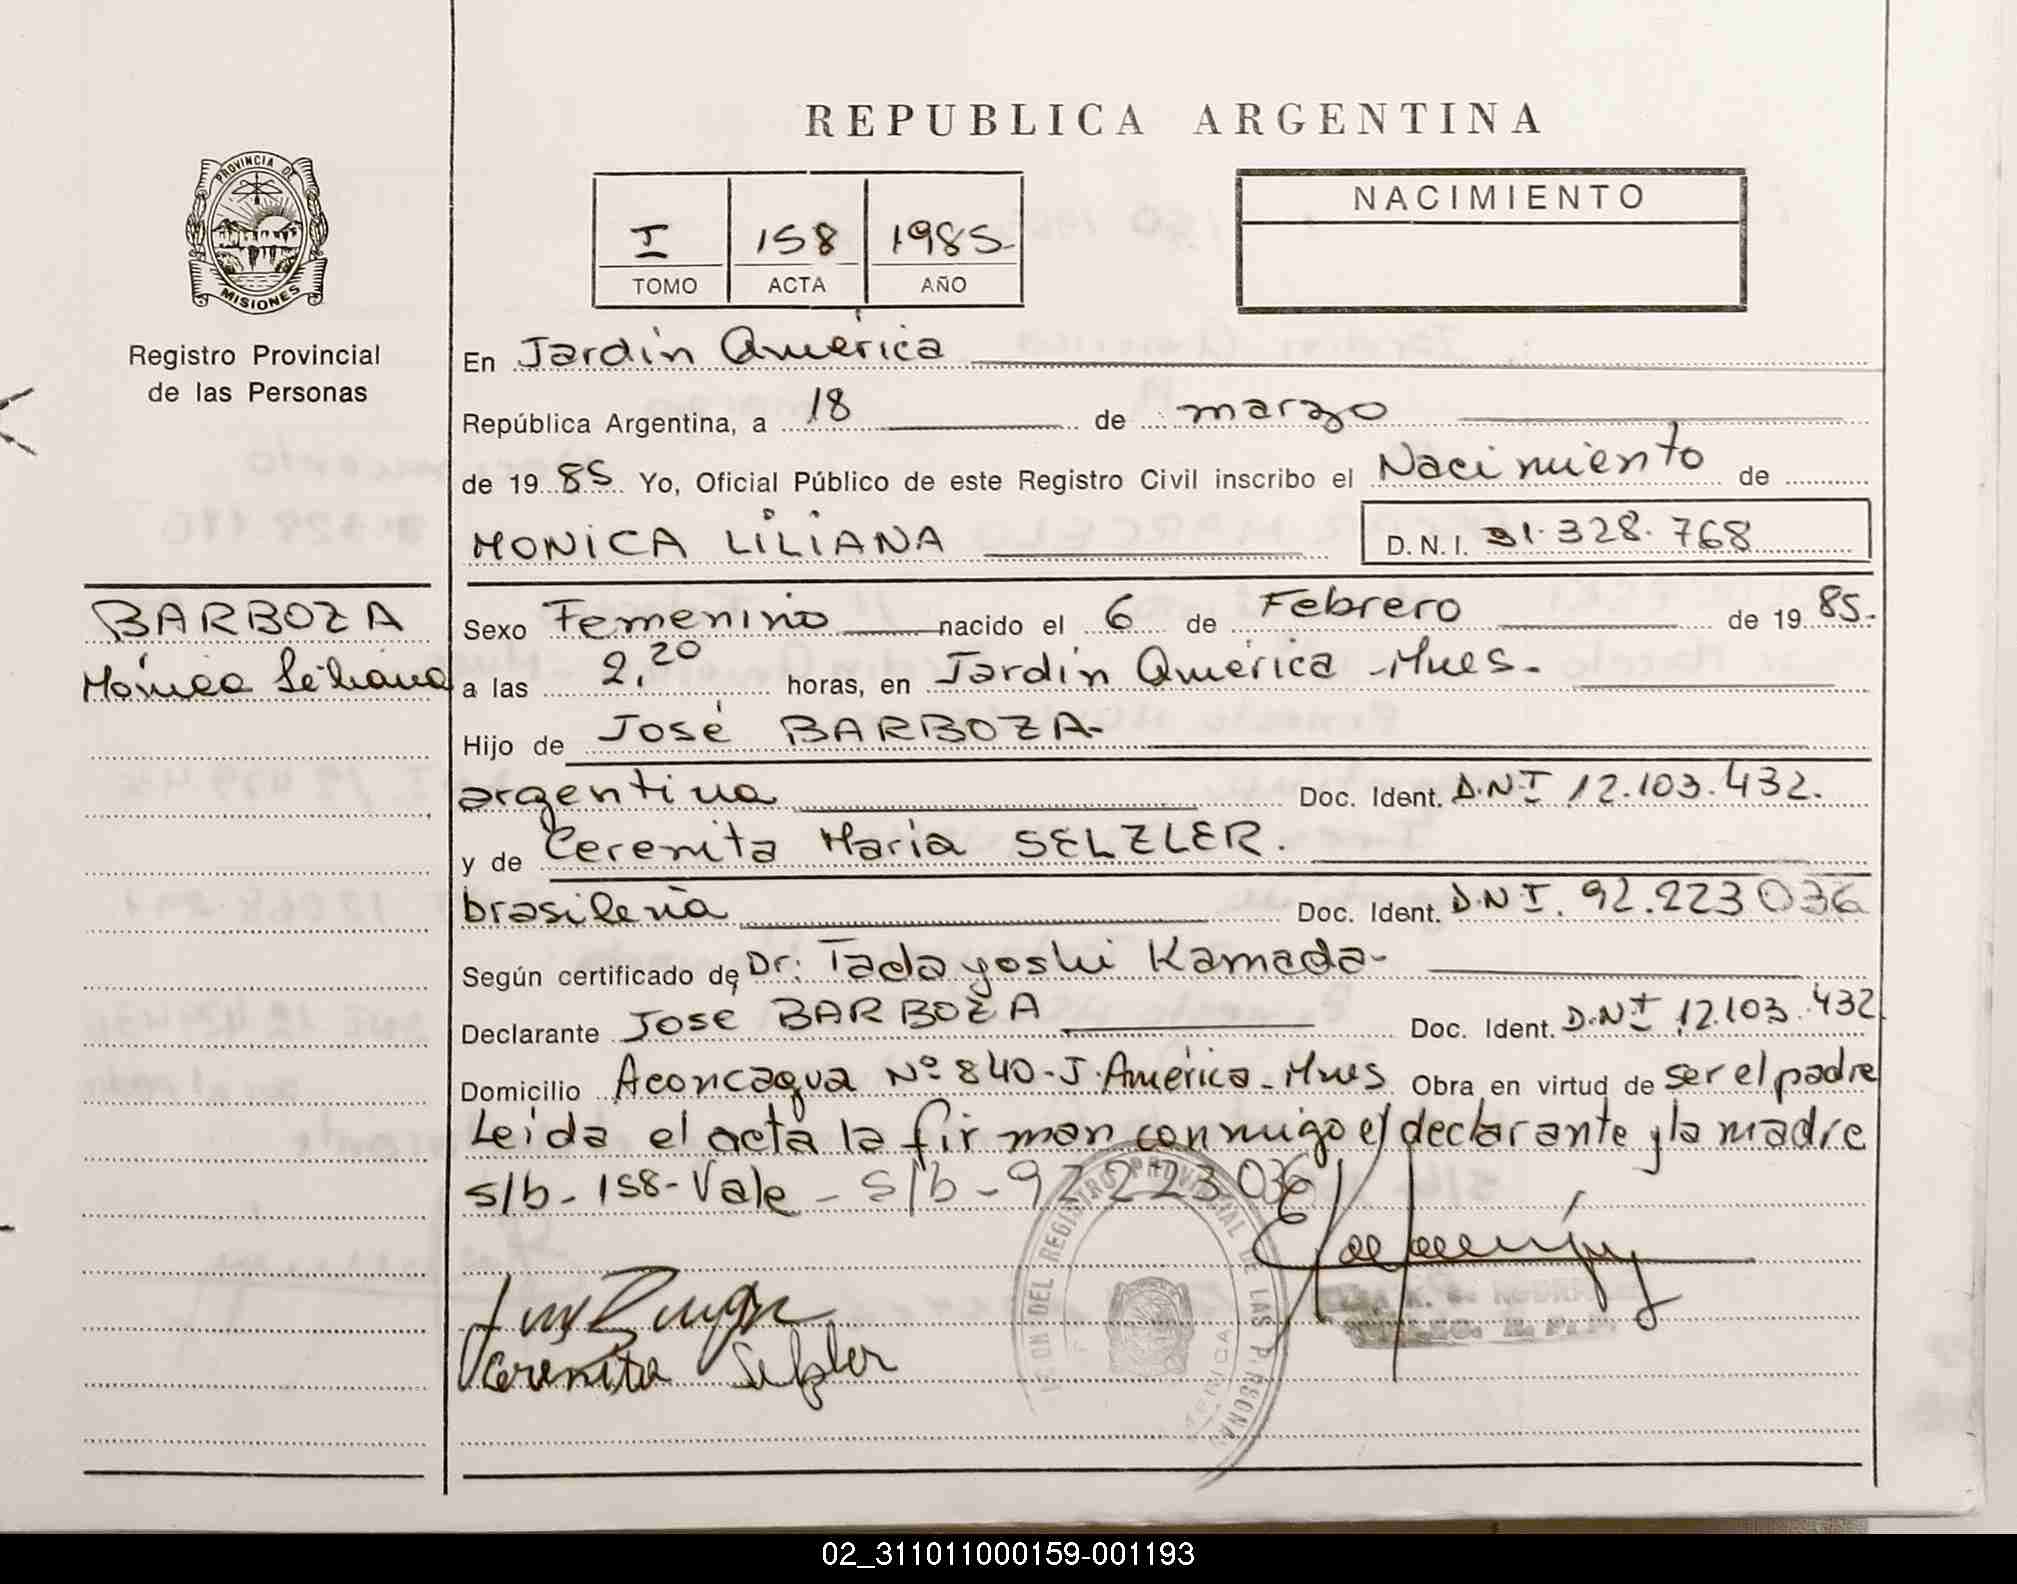 REPUBLICA ARGENTINA
PROVINCIA DE
MISIONES
Registro Provincial
de las Personas
I 158 1985-
TOMO ACTA AÑO
NACIMIENTO
En Jardín América
República Argentina, a 18 de marzo
de 1985 Yo, Oficial Público de este Registro Civil inscribo el Nacimiento de
MONICA LILIANA D.N.I. 31.328.768
BARBOZA
Mónica Liliana
Sexo Femenino nacido el 6 de Febrero de 1985.
a las 2,20 horas, en Jardín América -Mnes-
Hijo de José BARBOZA-
argentina Doc. Ident. D.N.I 12.103.432.
y de Cerenita Maria SELZLER.
brasileña Doc. Ident. D.N.I. 92.223 036
Según certificado de Dr: Tadayoshi Kamada-
Declarante JOSE BARBOZA Doc. Ident. D.N.I 12.103.432
Domicilio Aconcagua Nº 840-J.América-Mnes Obra en virtud de ser el padre
Leída el acta la firman conmigo el declarante y la madre
s/b- 158-Vale - s/b - 92 223 036
Cerenita Selzler
REGISTRO PROVINCIAL DE LAS
02_311011000159-001193